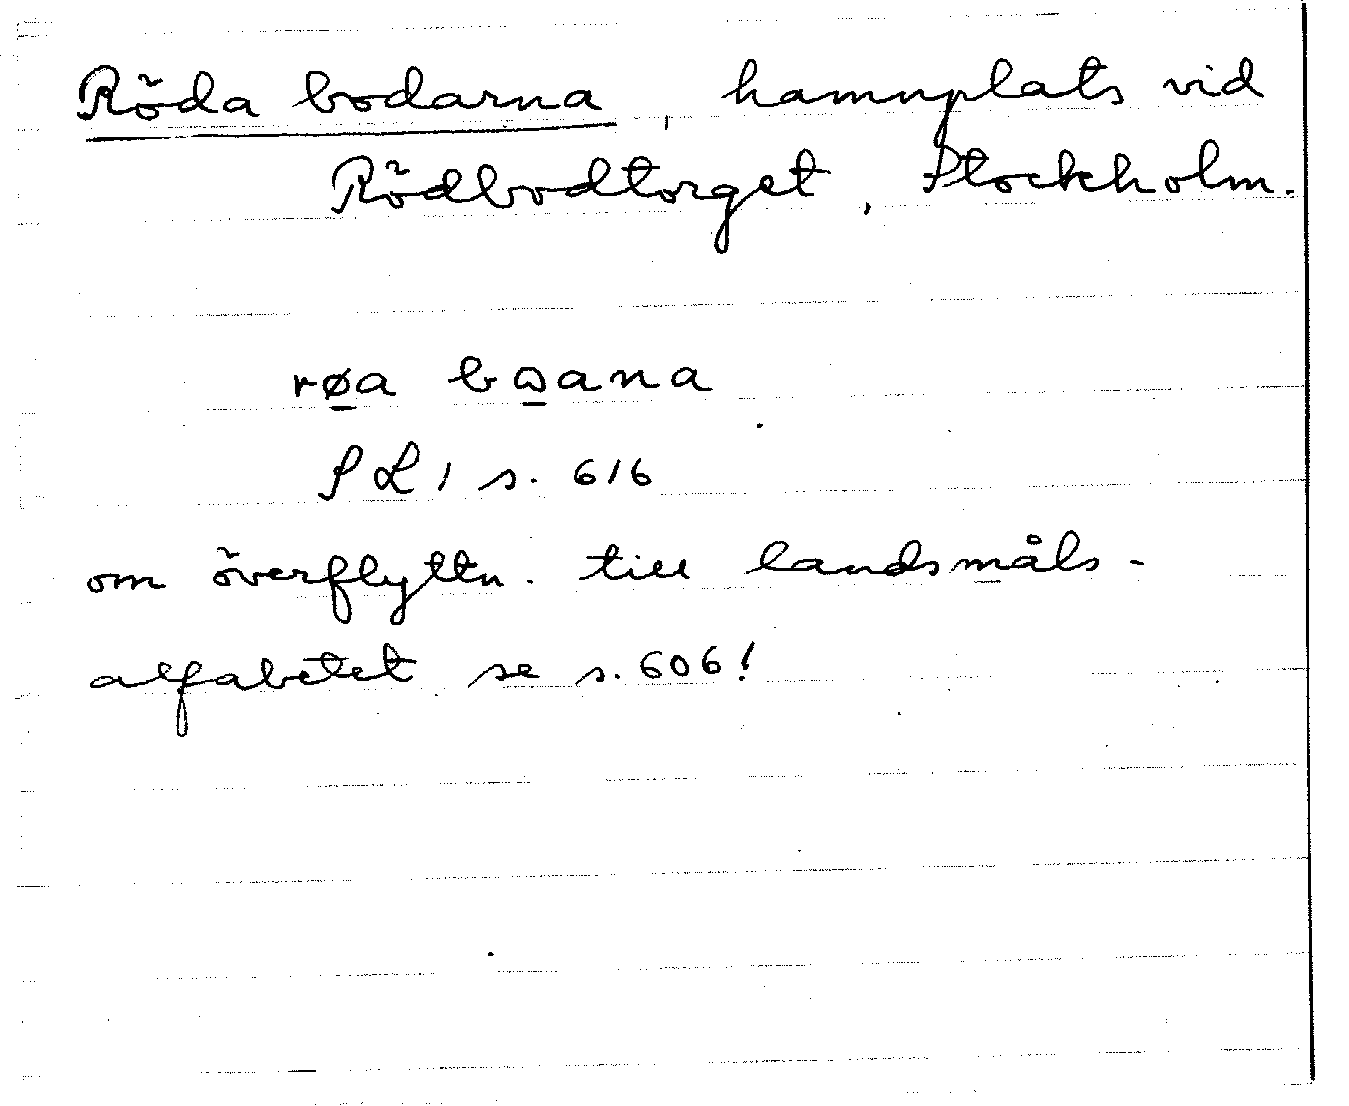 Röda bodarna, hamnplats vid
Rödbodtorget, Stockholm.
røa bɷana
SL 1 s. 616
om överflyttn. till landsmåls-
alfabetet se s. 606!